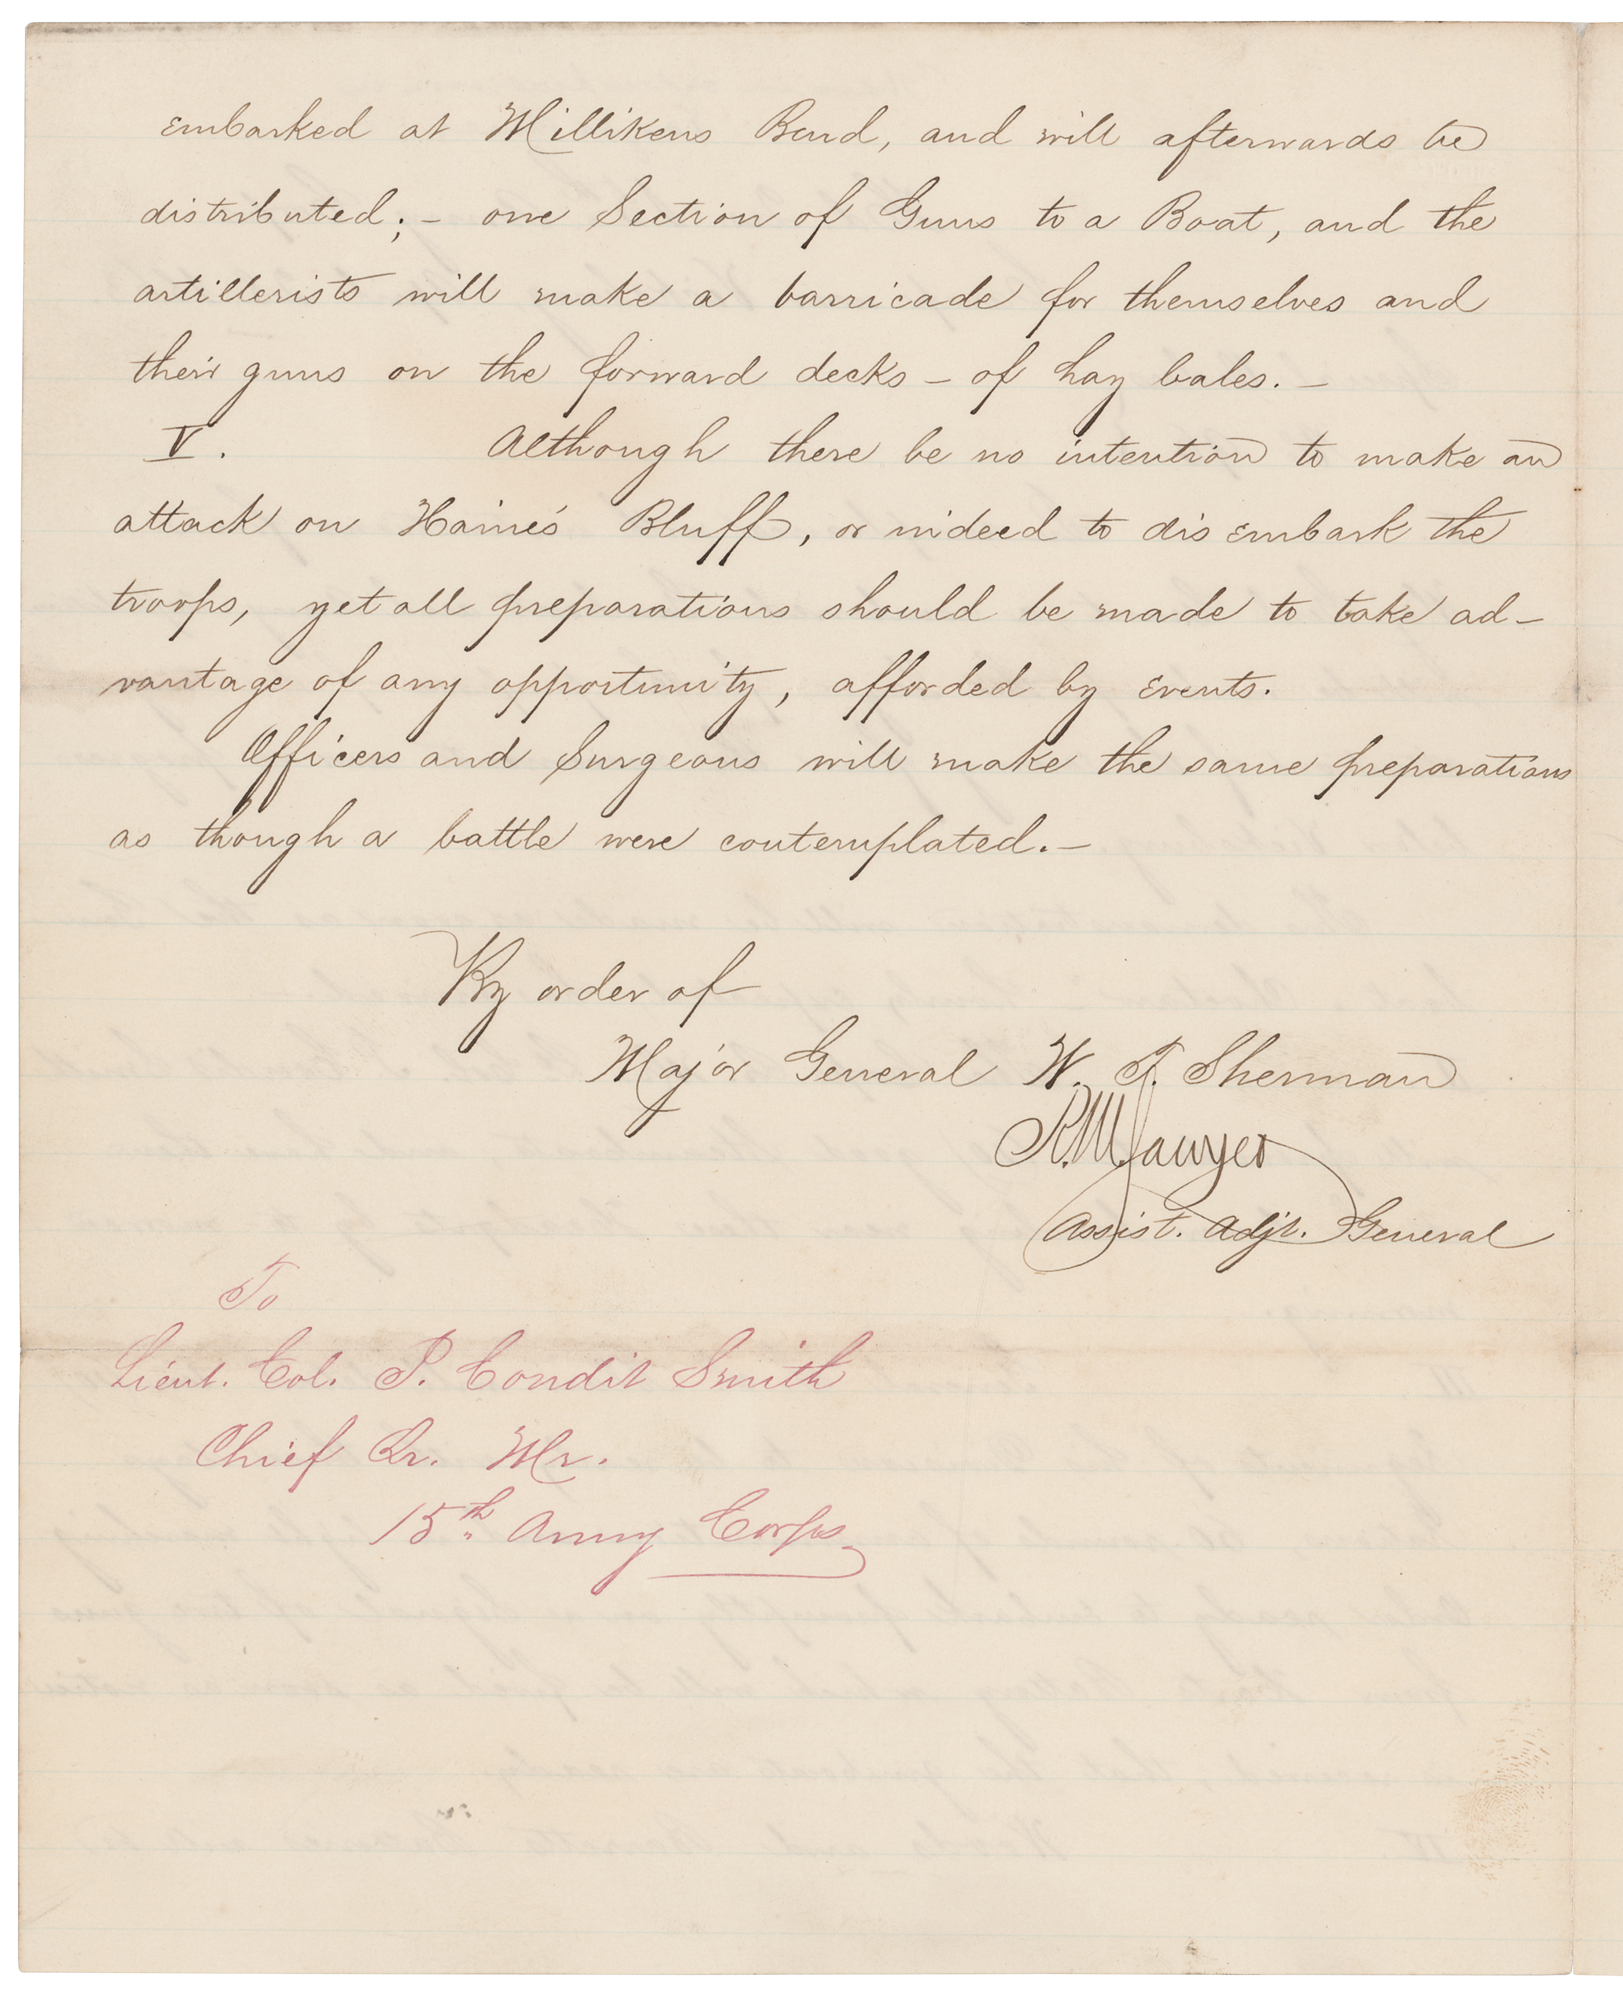 embarked at Millikens Bend, and will afterwards be
distributed; – one Section of Guns to a Boat, and the
artillerists will make a barricade for themselves and
their guns on the forward decks – of hay bales. –
V. Although there be no intention to make an
attack on Haine's Bluff, or indeed to dis embark the
troops, yet all preparations should be made to take ad–
vantage of any opportunity, afforded by events.
Officers and Surgeons will make the same preparations
as though a battle were contemplated. –
By order of
Major General W. T. Sherman
R.M. Sawyer
Assist. Adjt. General
To
Lieut. Col. P. Condit Smith
Chief Qr. Mr.
15th Army Corps